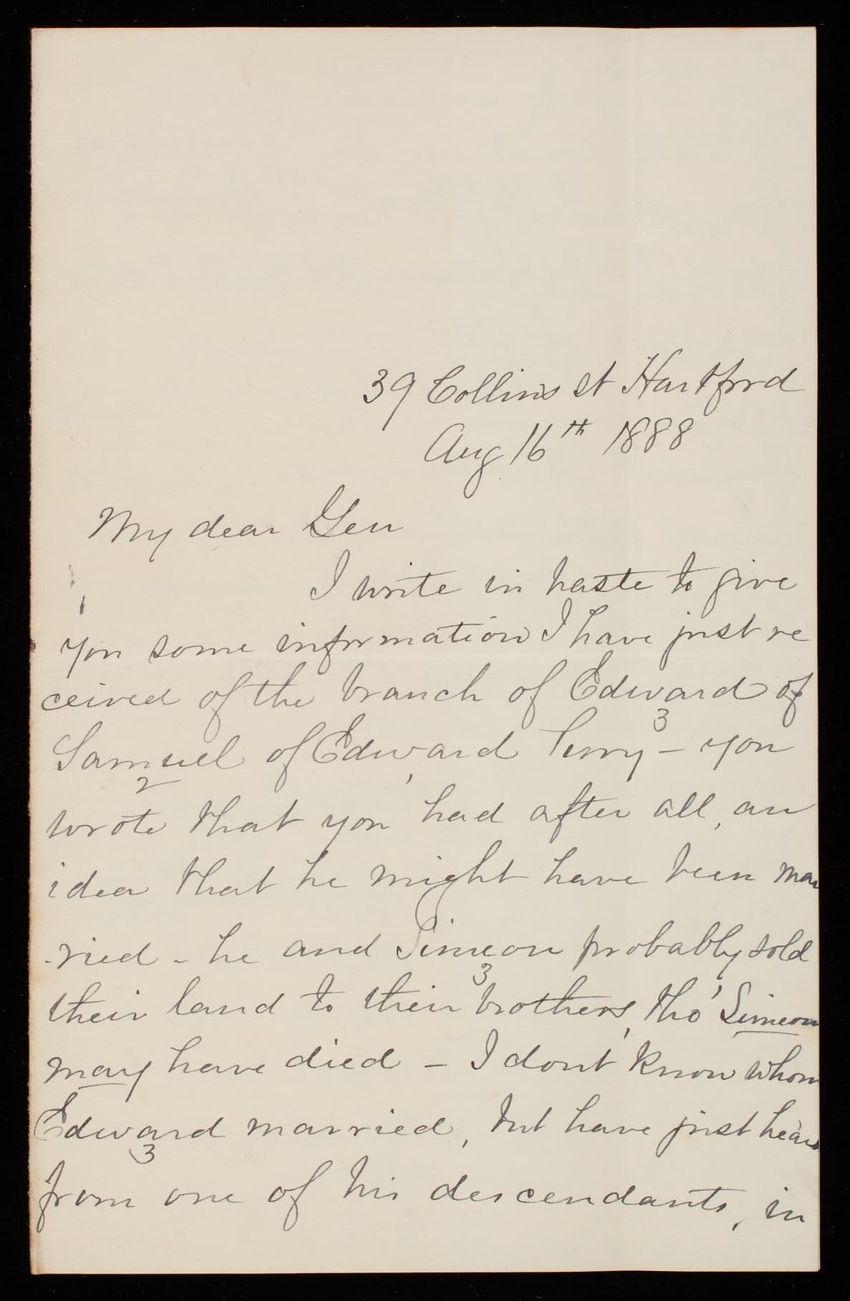 39 Collins st Hartford
Aug 16th 1888
My dear Gen
I write in haste to give
you some information I have just re
ceived of the branch of Edward 3 of
Samuel 2 of Edward 1 Perry – you
wrote that you had after all, an
idea that he might have been mar
-ried - he and Simeon 3 probably sold
their land to their brothers, tho' Simeon
may have died – I dont know whom
Edward 3 married, but have just heard
from one of his descendants, in